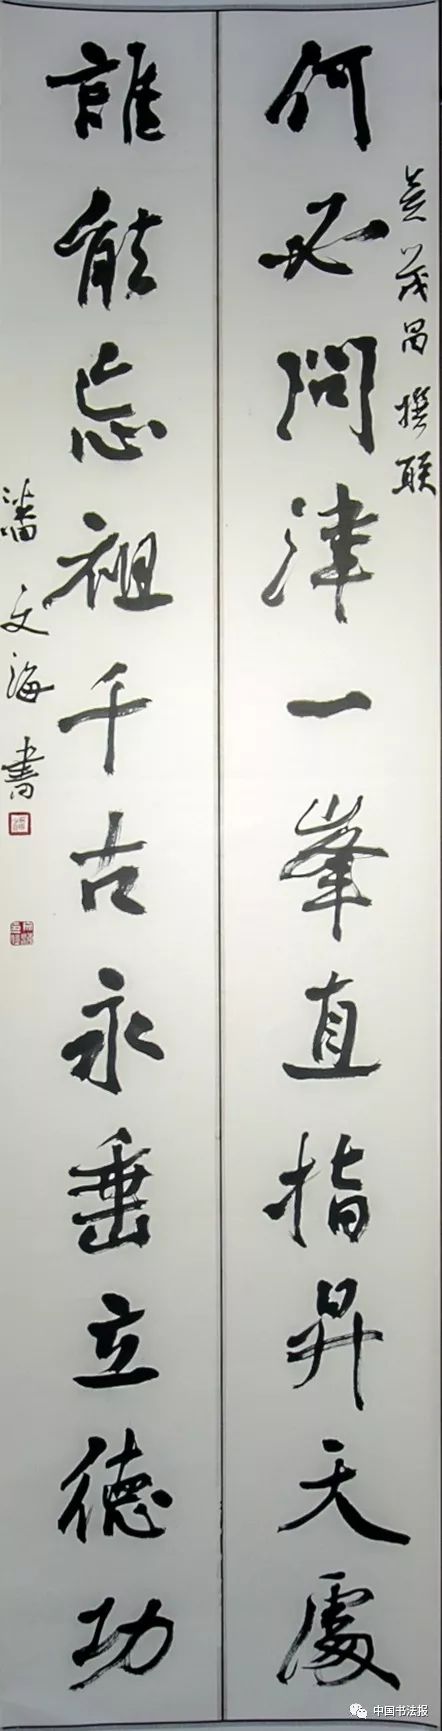 何必問津一峯直指昇天處
茂昌撰联
誰能忘祖千古永垂立德功
潘文海書
中国书法报